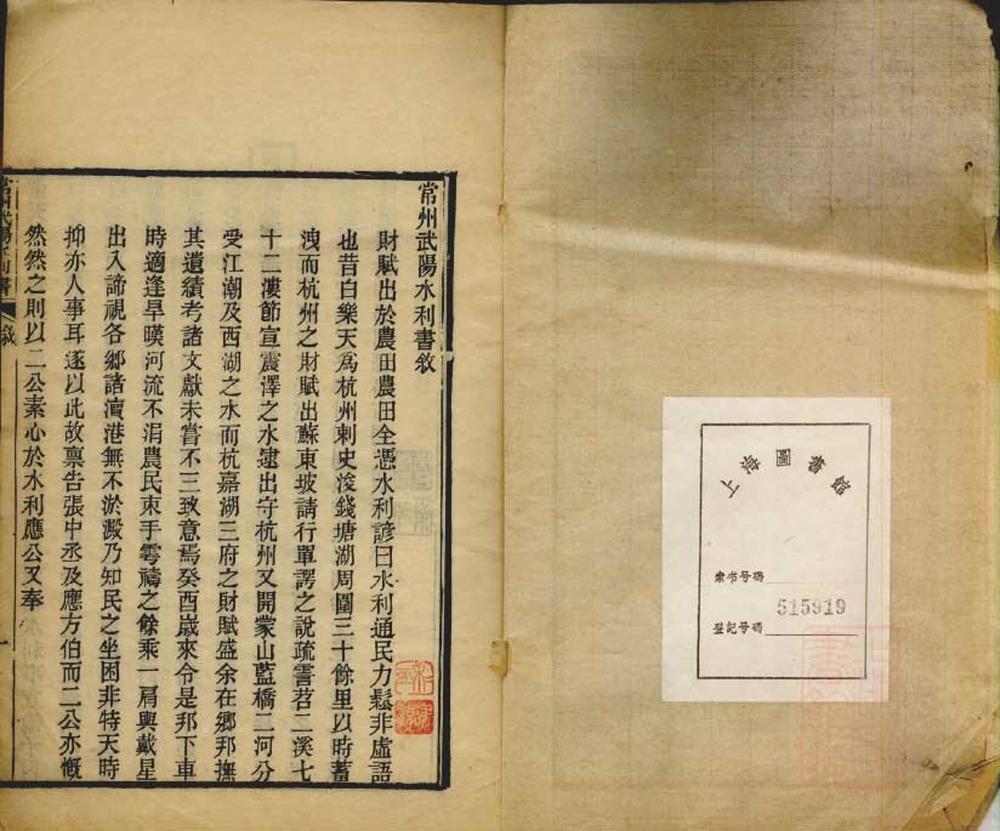 上海圖書館
索书号碼
515919
登記号碼
常州武陽水利書敘
財賦出於農田農田全憑水利諺曰水利通民力鬆非虛語
也昔白樂天爲杭州刺史浚錢塘湖周圍三十餘里以時蓄
洩而杭州之財賦出蘇東坡請行單諤之說疏霅苕二溪七
十二漊節宣震澤之水逮出守杭州又開蒙山藍橋二河分
受江潮及西湖之水而杭嘉湖三府之財賦盛余在鄉邦撫
其遺績考諸文獻未嘗不三致意焉癸酉歲來令是邦下車
時適逢旱暵河流不涓農民束手雩禱之餘乘一肩輿戴星
出入諦視各鄉諸瀆港無不淤澱乃知民之坐困非特天時
抑亦人事耳遂以此故稟告張中丞及應方伯而二公亦慨
然然之則以二公素心於水利應公又奉
常州武陽水利書 敘 一